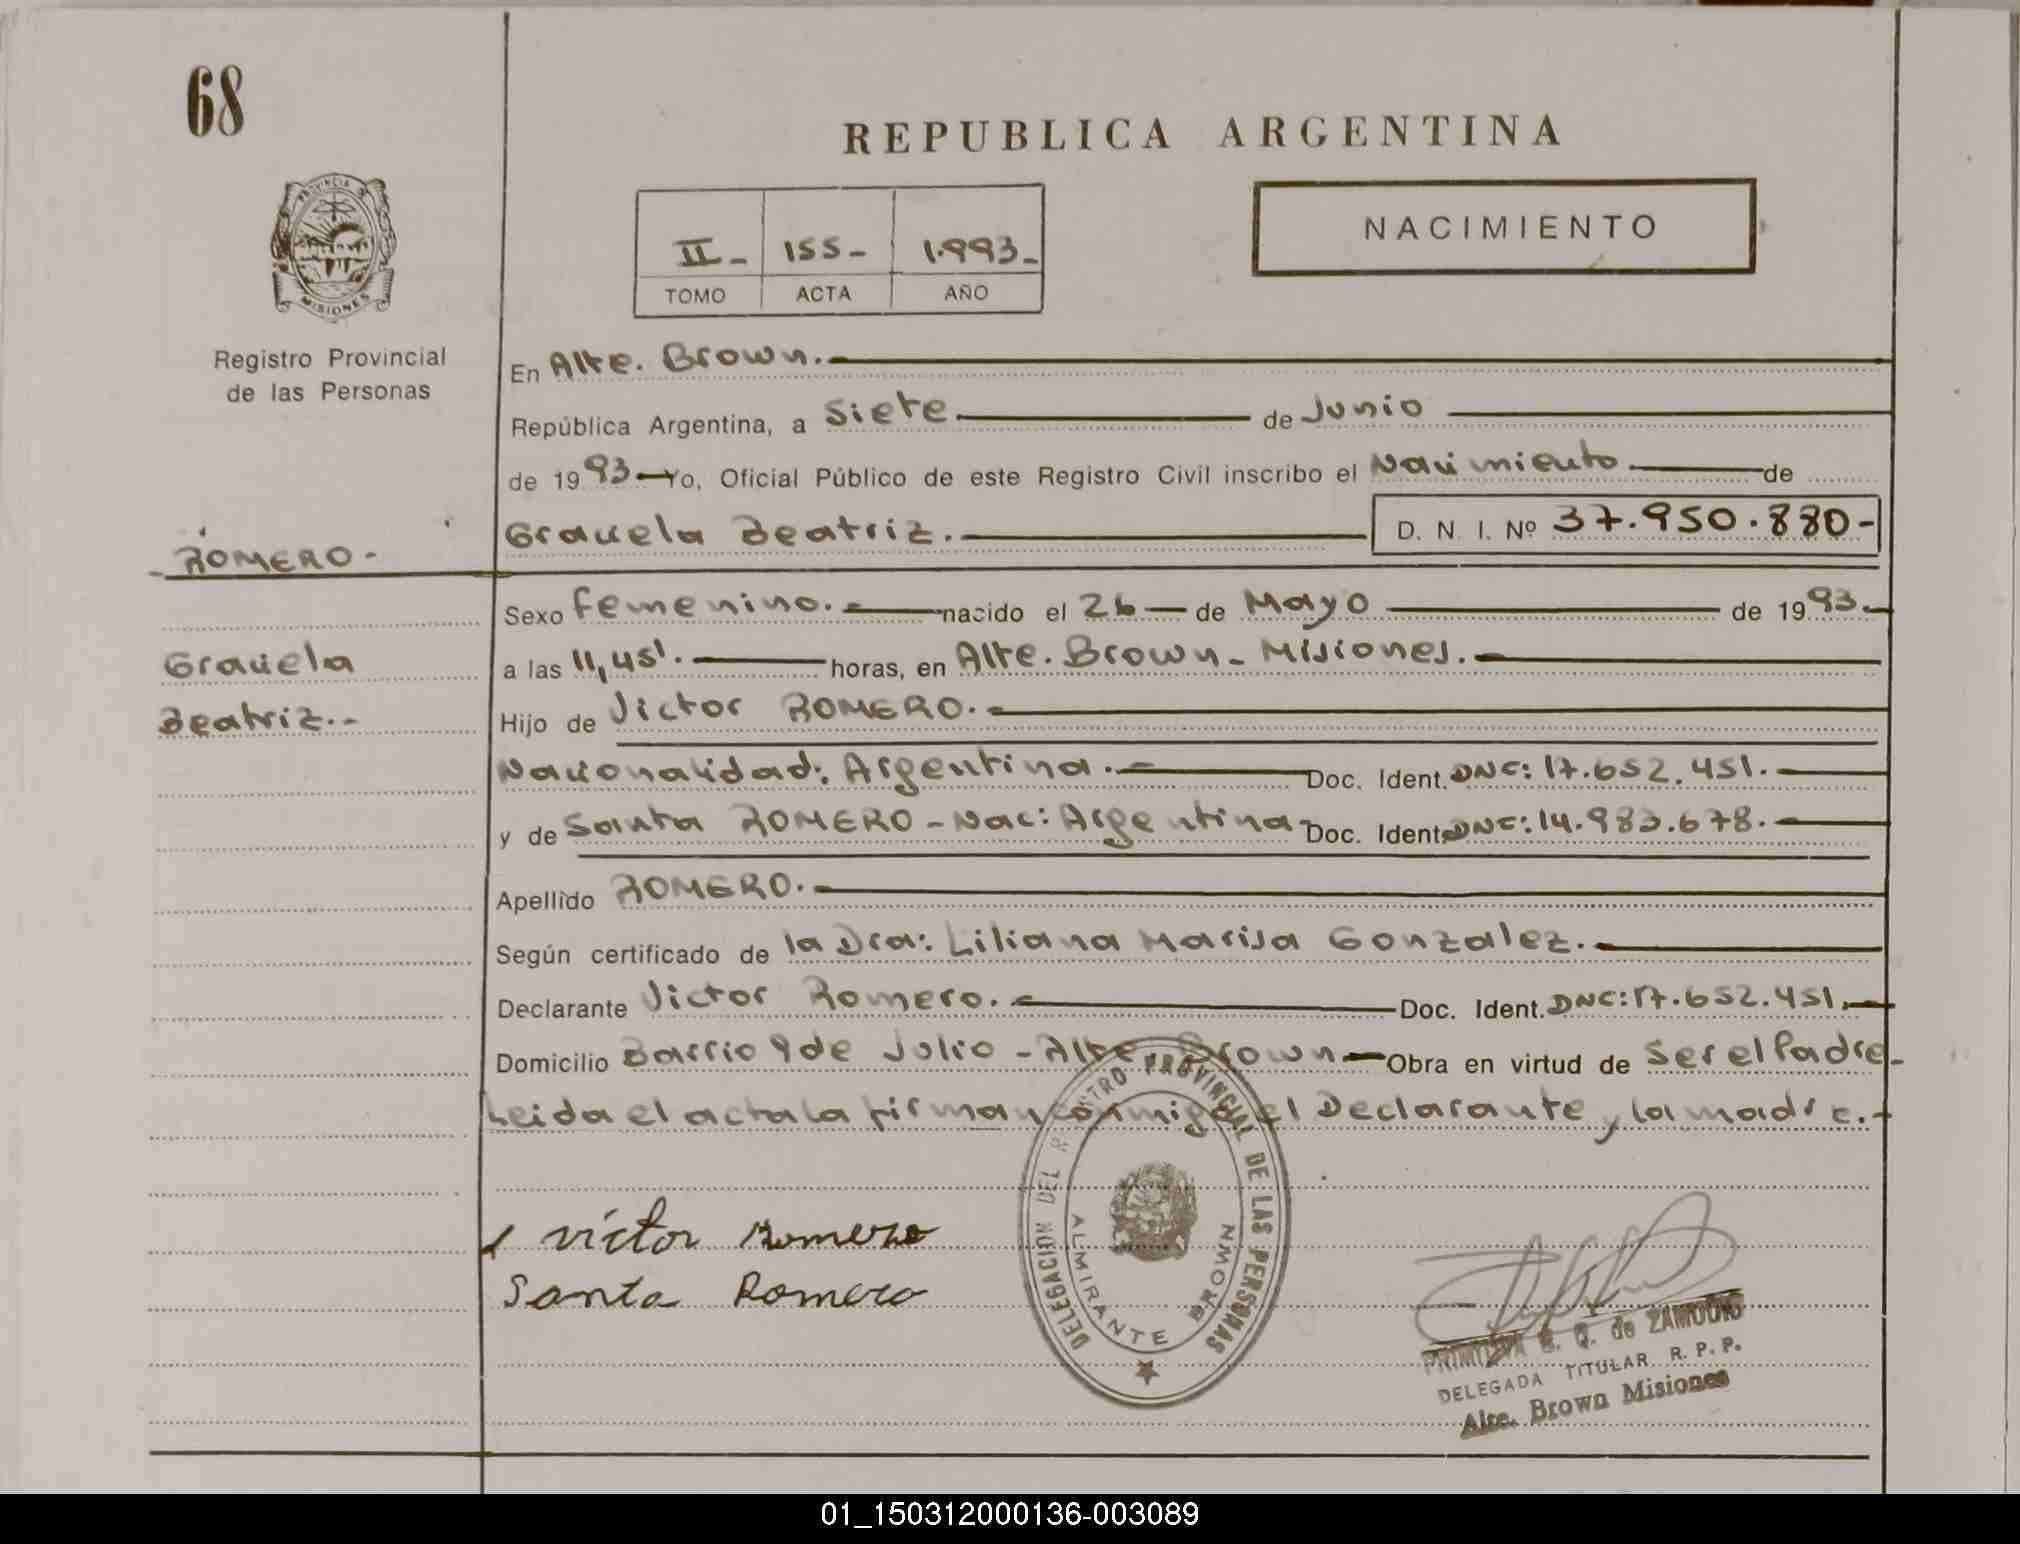 68
REPUBLICA ARGENTINA
PROVINCIA DE
MISIONES
Registro Provincial
de las Personas
II - 155 - 1.993 -
TOMO ACTA AÑO
NACIMIENTO
En Alte. Brown.
República Argentina, a siete de Junio
de 1993 Yo, Oficial Público de este Registro Civil inscribo el Nacimiento de
Graciela Beatriz. D. N. I. Nº 37.950.880-
ROMERO -
Graciela
Beatriz.-
Sexo femenino. nacido el 26 de Mayo de 1993.
a las 11,45'. horas, en Alte. Brown - Misiones.
Hijo de Victor ROMERO.
Nacionalidad: Argentina. Doc. Ident. DNC: 17.652.451.
y de Santa ROMERO - Nac: Argentina Doc. Ident. DNC: 14.983.678.
Apellido ROMERO.
Según certificado de la Dra: Liliana Marisa Gonzalez.
Declarante Victor Romero. Doc. Ident. DNC: 17.652.451.
Domicilio Barrio 9 de Julio - Alte. Brown Obra en virtud de ser el Padre -
Leida el acta la firman conmigo el Declarante y la madre.
victor Romero
Santa Romero
DELEGACION DEL REGISTRO PROVINCIAL DE LAS PERSONAS
ALMIRANTE BROWN
de ZAMUDIO
DELEGADA TITULAR R. P. P.
Alte. Brown Misiones
01_150312000136-003089